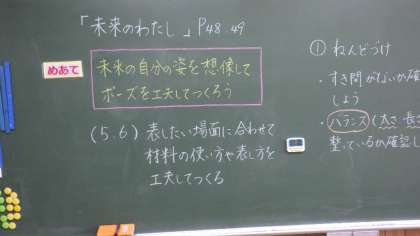 「未来のわたし」P48.49
めあて
未来の自分の姿を想像して
ポーズを工夫してつくろう
(5.6) 表したい場面に合わせて
材料の使い方や表し方を
工夫してつくる
① ねんどづけ
・すき間がないか確
しよう
・バランス(太さ・長
整っているか確認し